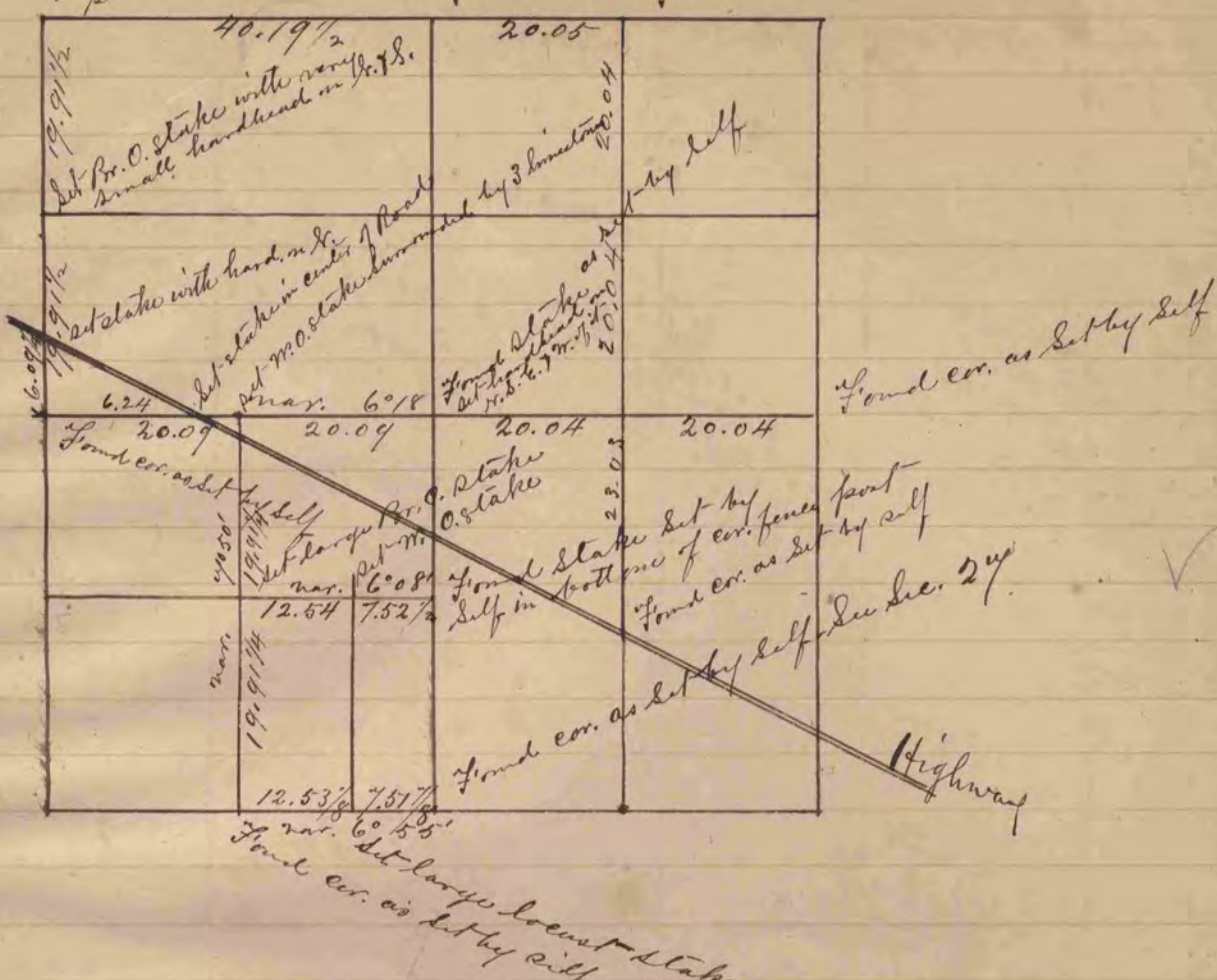 40.19 1/2
20.05
19.91 1/2
Set Br. O. stake with very
small hardhead on N. & S.
20.04
19.91 1/2
set stake with hard. on N.
Set stake in center of Road
set W. O. stake surrounded by 3 limestone
Found stake as set by self
set hardhead on
N. S. E. & W. of it
20.04
6.09 1/2
6.24
var. 6°18
Found cor. as Set by Self
20.09
20.09
20.04
20.04
Found cor. as Set by Self
23.03
var. 7°50'
19.91 1/4
Set large Br. O. stake
set W. O. stake
var. 6°08'
12.54
7.52 1/2
Found Stake Set by
Self in bottom of cor. fence post
Found cor. as Set by self
19.91 1/4
Found cor. as Set by Self See Sec. 27
Highway
12.53 7/8
7.51 7/8
var. 6°55'
Set large locust stake
Found cor. as Set by self